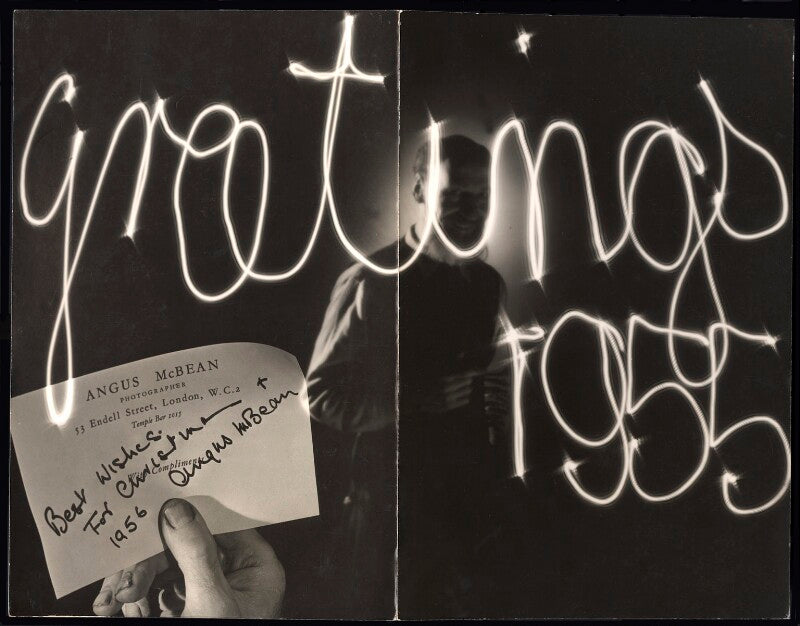 greetings
1955
ANGUS McBEAN
PHOTOGRAPHER
53 Endell Street, London, W.C.2
Temple Bar 1015
With Compliments
Best Wishes.
For Christmas +
1956 Angus McBean